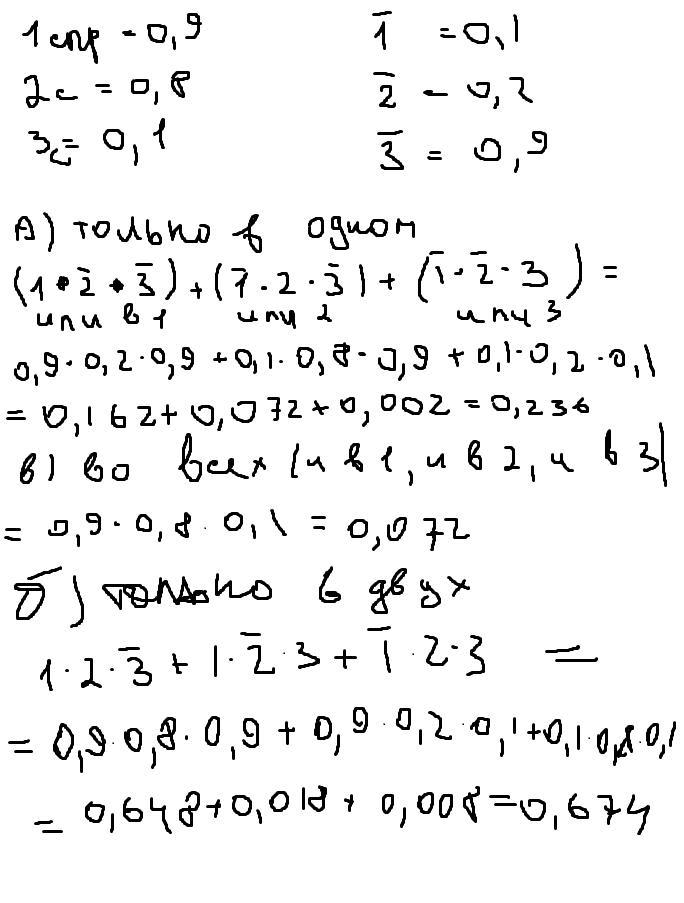 1 спр - 0,9 1̄ = 0,1
2с = 0,8 2̄ - 0,2
3с = 0,1 3̄ = 0,9
А) только в одном
(1 • 2̄ • 3̄) + (1̄ · 2 · 3̄) + (1̄ · 2̄ · 3) =
или в 1 или 2 или 3
0,9 · 0,2 · 0,9 + 0,1 · 0,8 · 0,9 + 0,1 · 0,2 · 0,1
= 0,162 + 0,072 + 0,002 = 0,236
в) во всех (и в 1, и в 2, и в 3)
= 0,9 · 0,8 · 0,1 = 0,072
б) только в двух
1 · 2 · 3̄ + 1 · 2̄ · 3 + 1̄ · 2 · 3 =
= 0,9 · 0,8 · 0,9 + 0,9 · 0,2 · 0,1 + 0,1 · 0,8 · 0,1
= 0,648 + 0,018 + 0,008 = 0,674